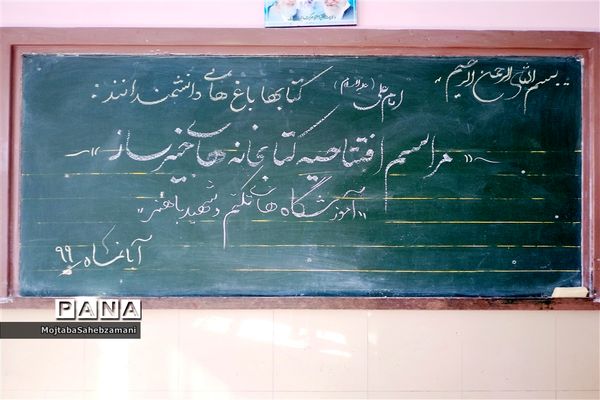 "بسم الله الرحمن الرحیم"
امام علی (علیه السلام) کتابها باغ های دانشمندانند:
مراسم افتتاحیه کتابخانه های خیرساز
"آموزشگاه های تکتم و شهید باهنر"
آبانماه ۹۹
PANA
MojtabaSahebzamani